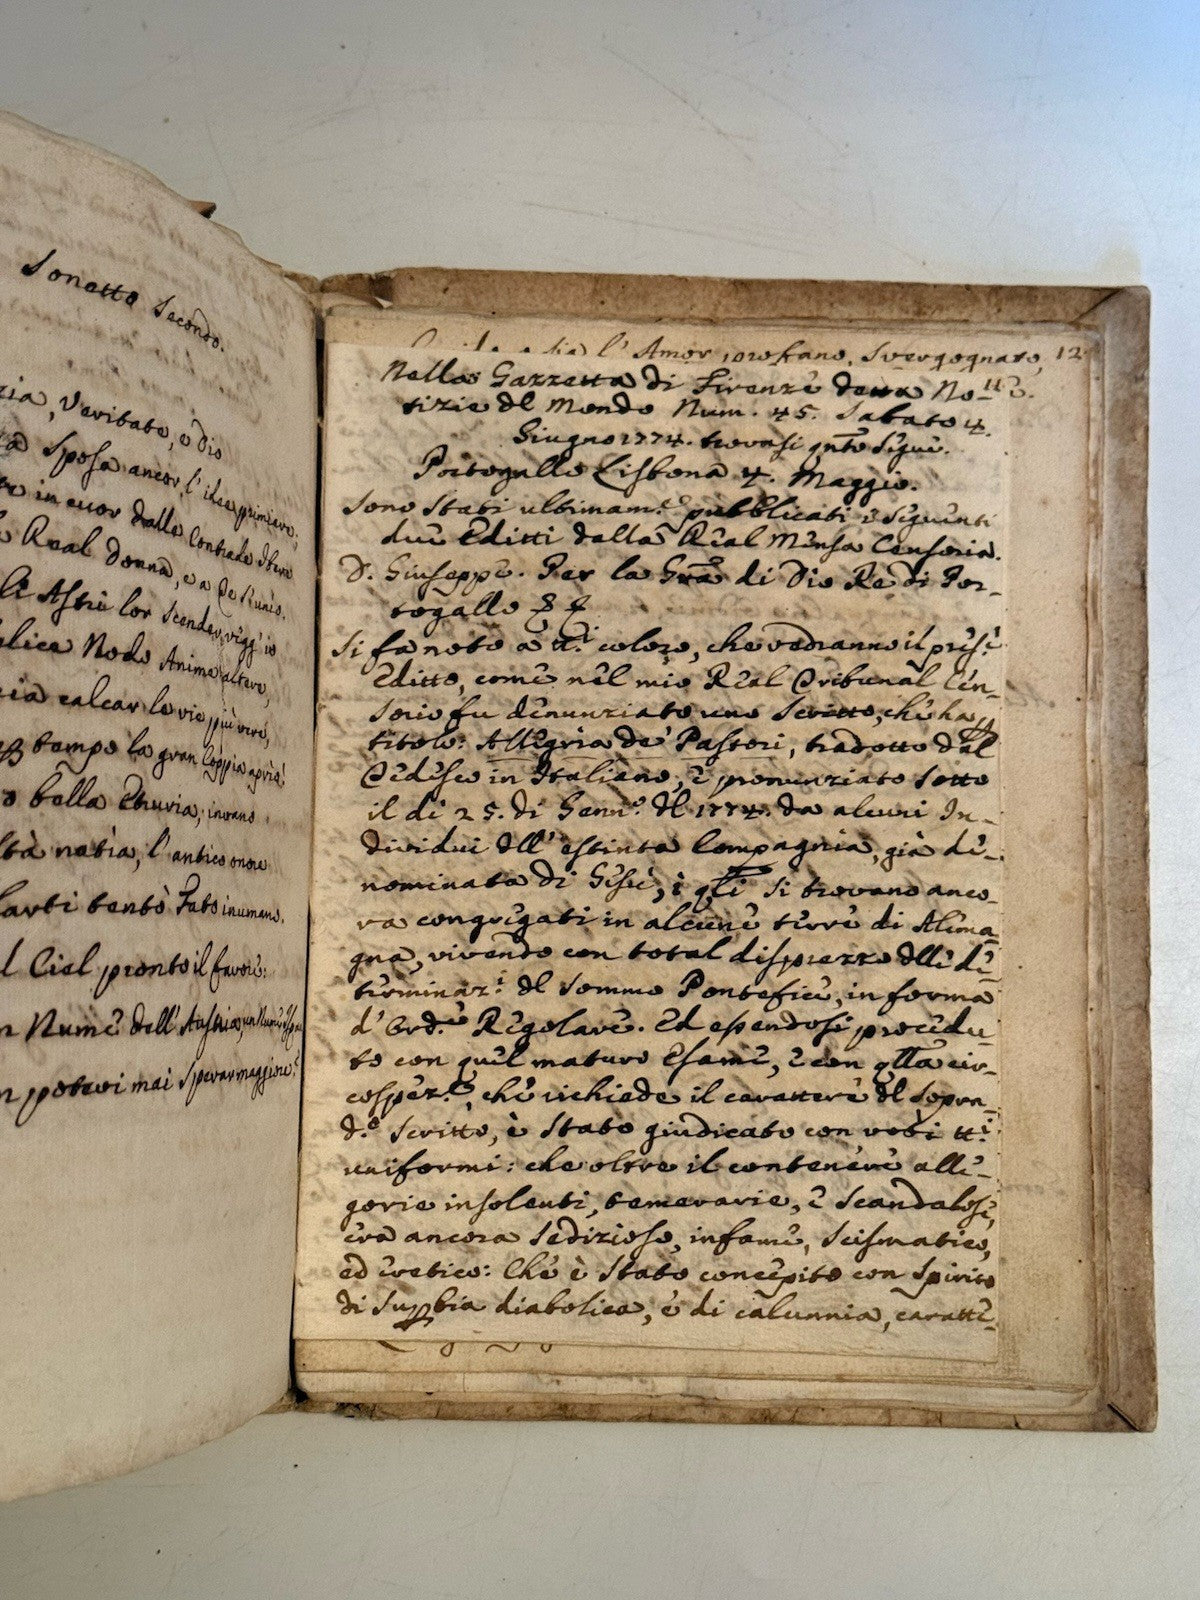 Sonetto Secondo.
zia, Veritate, e Dio
Sposa ancor l'idee primiere;
in cuor dalle Contrade Ibere
Real donna, e a
li Astri lor Scender vegg'io
plice Nodo Anime altere,
calcar le vie più vere,
tempo la gran Coppia aprìa!
bella Etruria, invano
ltà natìa, l'antico onore
larti tentò Fato inumano,
l Ciel pronto il favore:
n Nume dell'Austria, un Nume
n potevi mai Sperar maggiore!
l'Amor profano, Svergognaro, 12
Nella Gazzetta di Firenze detta No=
tizie del Mondo Num. 45. Sabato 4.
Giugno 1774. trovasi qnto Sigue.
Portogallo Lisbona 4. Maggio.
Sono Stati ultimam.e pubblicati i Siguenti
due Editti dalla Real Mensa Censoria.
D. Giuseppe. Per la Gra di Dio Re di Por-
togallo &c
Si fa noto a tt.i coloro, che vedranno il pres.e
Editto, come nel mio Real Tribunal Cen-
sorio fu denunziato uno Scritto, che ha p
titolo: Allegria de' Pastori, tradotto dal
Tedesco in Italiano, e pronunziato Sotto
il di 25. di Genn.o del 1774. da alcuni In-
dividui dell'estinta Compagnia, già de-
nominata di Gesù, i qli Si trovano anco-
ra congregati in alcune terre di Alema-
gna, vivendo con total disprezzo delle de-
terminaz.i del Sommo Pontefice, in forma
d'Ord.e Regolare. Ed essendosi procedu-
to con quel maturo Esame, e con qlla cir-
cospez.e, che richiede il carattere del Sopra-
d.o Scritto, è Stato giudicato con voti tt.i
uniformi: che oltre il contenere alle-
gorie insolenti, temerarie, e Scandalose,
era ancora Sedizioso, infame, Scismatico,
ed eretico: Che è Stato concepito con Spirito
di Supbia diabolica, e di calunnia, caratte-